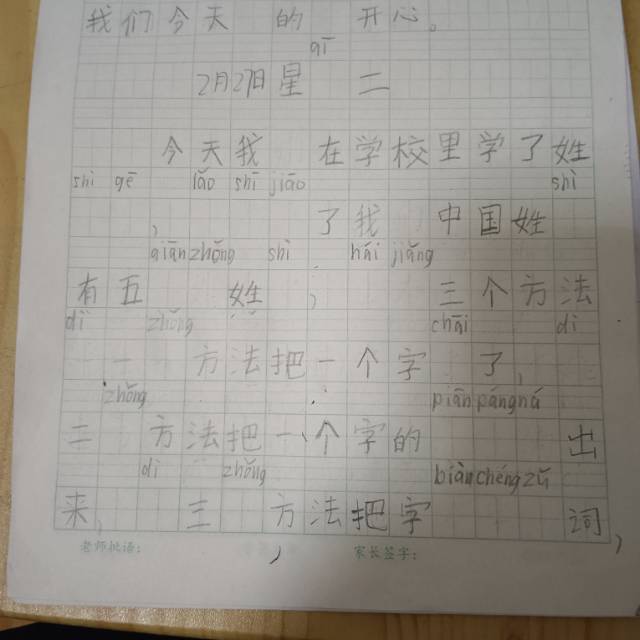 我们今天 的 开心。
qī
2月21日星 二
今天我 在学校里学了姓
shì gē lǎo shī jiāo shì
, 了我 中国姓
qiān zhǒng shì hái jiǎng
有五 姓, 三个方法
dì zhǒng chāi dì
一 方法把一个字 了,
zhǒng piān páng ná
二 方法把一个字的 出
dì zhǒng biàn chéng zǔ
来, 三 方法把字 词,
老师批语: 家长签字: